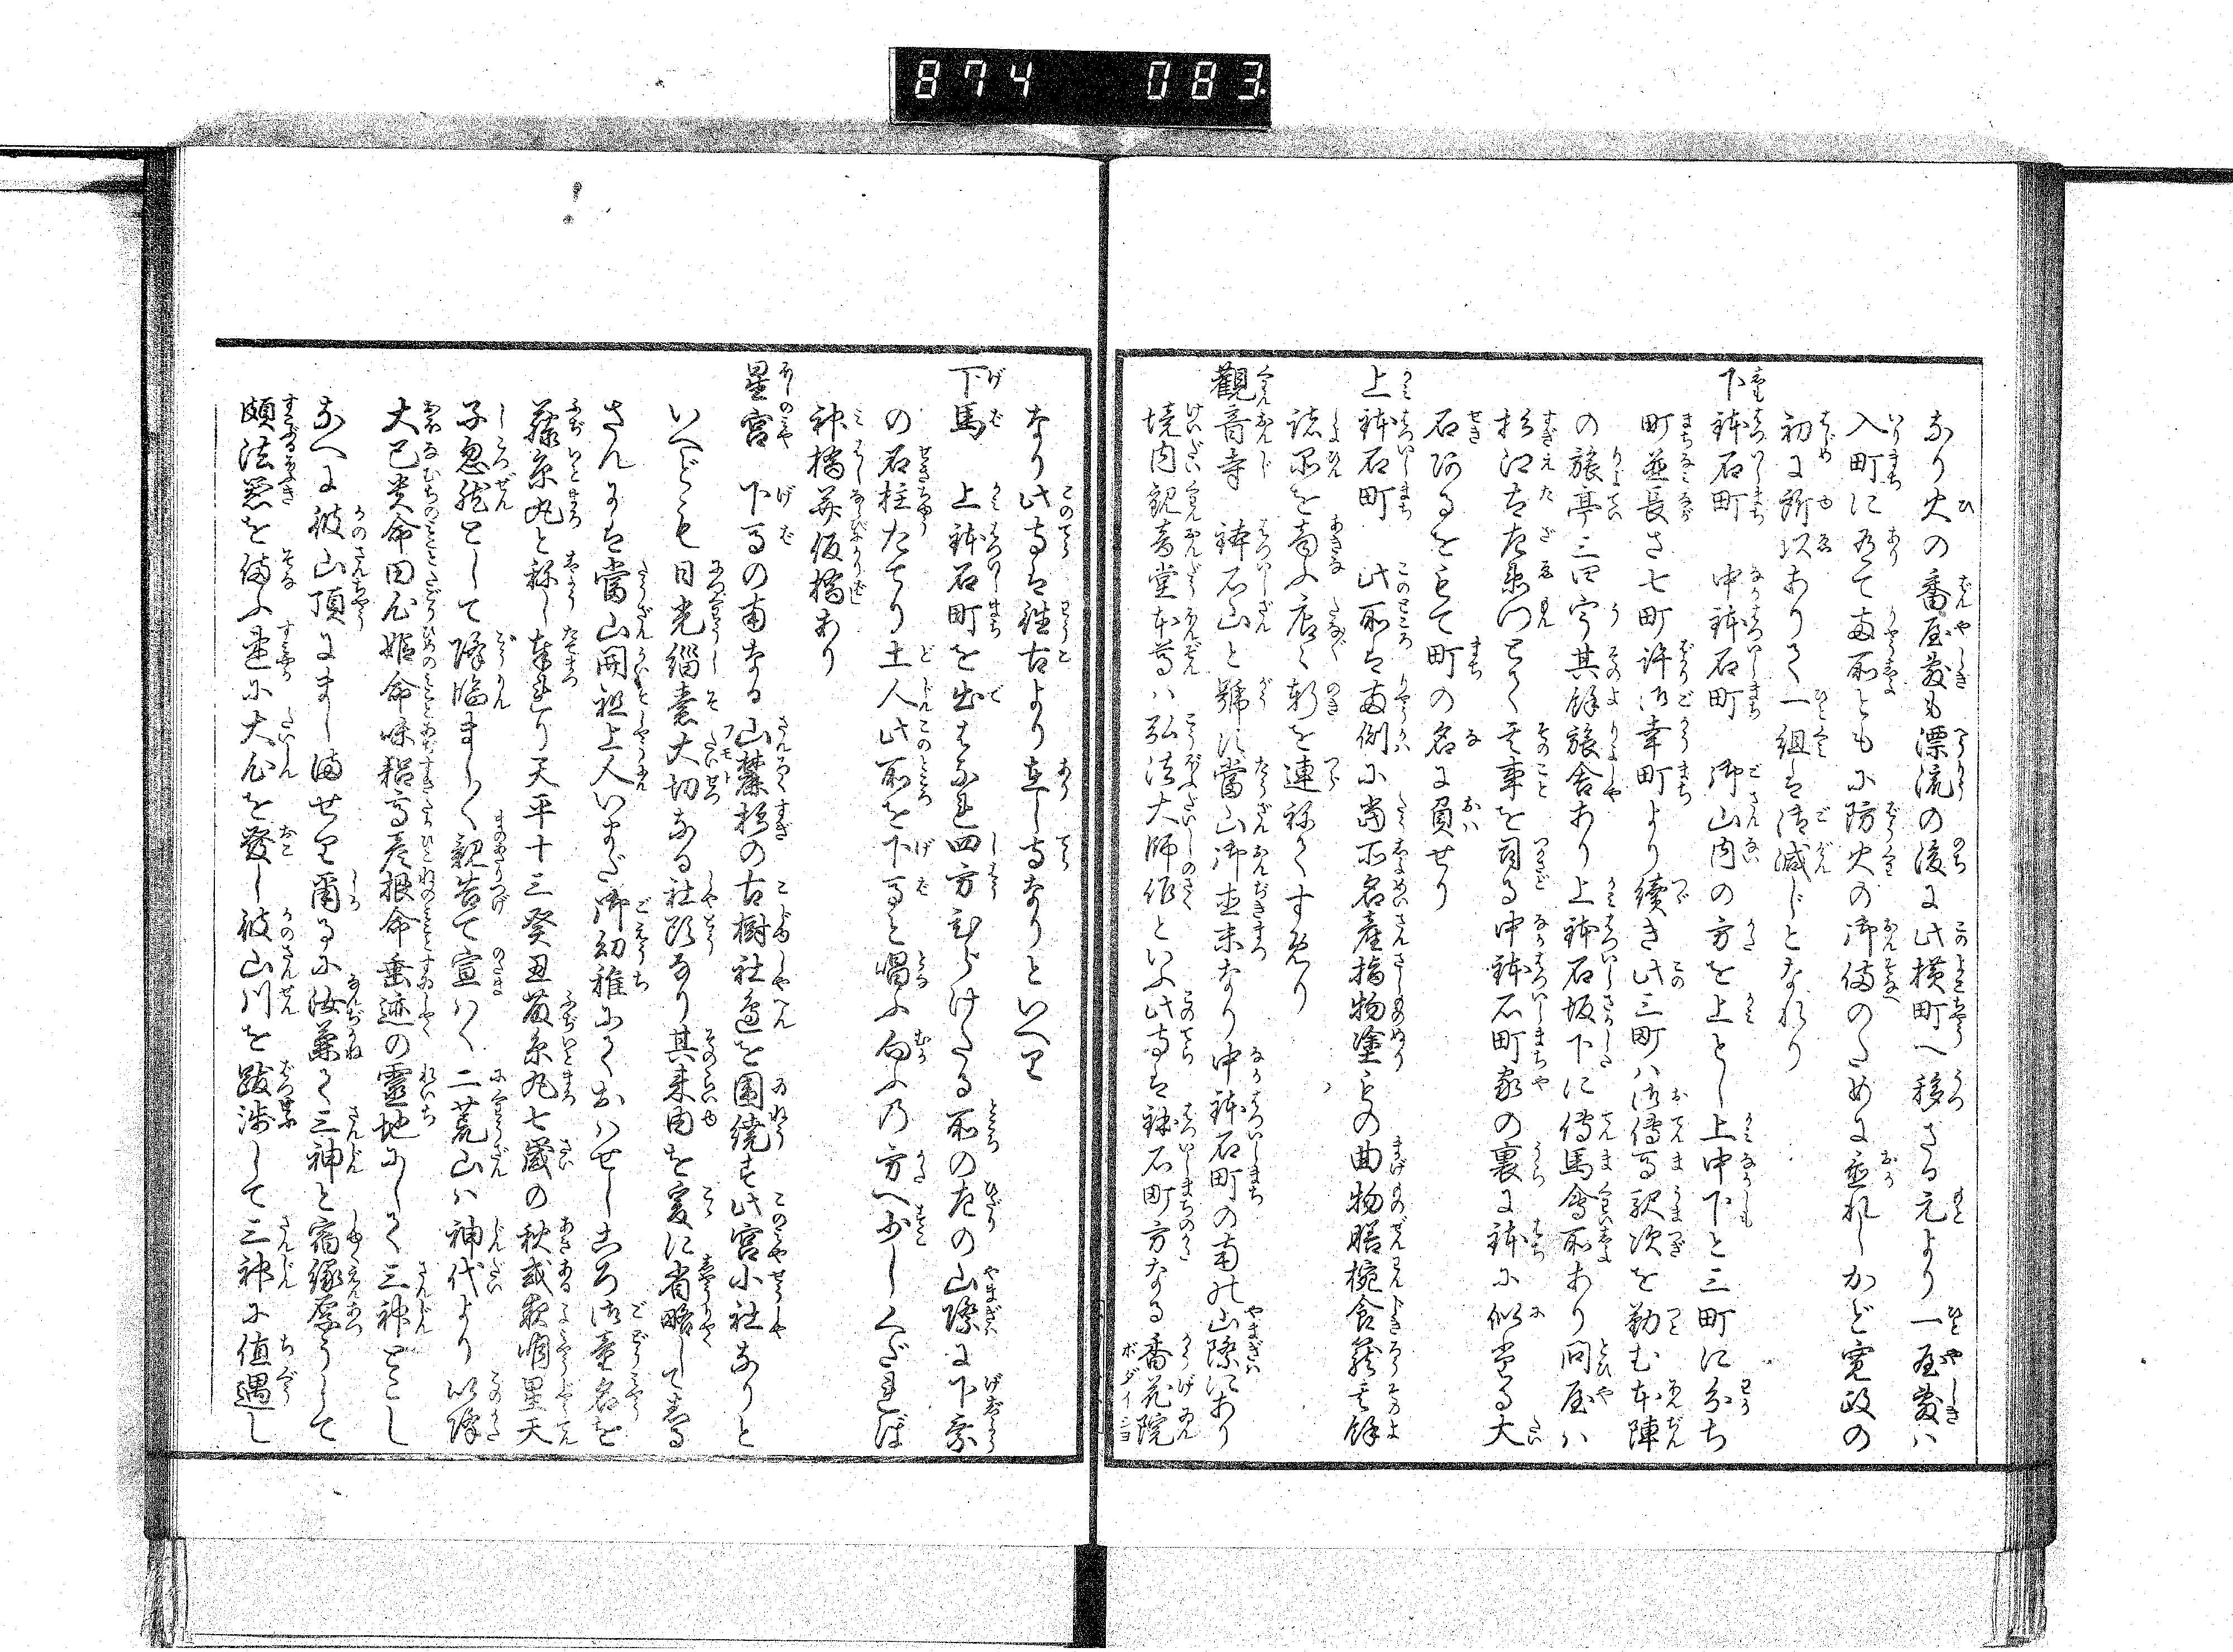 874 083
なり火の番屋敷も漂流の後に此横町へ移さる元より一屋敷ハ
入町に有て両所ともに防火の御備のために並れしかど寛政の
初に所以ありて一組は御減じとなれり
下鉢石町 中鉢石町 御山内の方を上とし上中下と三町に分ち
町並長さ七町許御幸町より続き此三町ハ御傳馬駅次を勤む本陣
の旅亭三四宇其餘旅舎あり上鉢石坂下に傳馬會所あり問屋ハ
杉江太左衛門とて其事を司る中鉢石町家の裏に鉢に似たる大
石あるをもて町の名に負せり
上鉢石町 此所は両側に當所名産指物塗もの曲物膳椀食籠其餘
諸品を商ふ店々軒を連ねてすめり
觀音寺 鉢石山と號に當山御直末なり中鉢石町の南の山際にあり
境内観音堂本尊ハ弘法大師作といふ此寺は鉢石町方なる香花院
なり此寺は往古より在し寺なりといへり
下馬 上鉢石町を出はなれ四方ひらけたる所の左の山際に下乗
の石柱たてり土人此所を下馬と唱ふ向ふの方へ少しくだれば
神橋并仮橋あり
星宮 下馬の南なる山麓杉の古樹社邊を囲繞す此宮小社なりと
いへども日光緇素大切なる社頭なり其来由を爰に省略してしる
さんには當山開祖上人いまだ御幼稚にておハせしころ御童名を
藤糸丸と称し奉れり天平十三癸丑藤糸丸七歳の秋或夜明星天
子忽然として降臨ましまして親告て宣ハく二荒山ハ神代より以降
大己貴命田心姫命味耜高彦根命垂迹の霊地にして三神とこし
なへに彼山頂にましませり爾るに汝兼て三神と宿縁厚うして
頗法器を備ふ速に大心を發し彼山川を跋渉して三神に値遇し